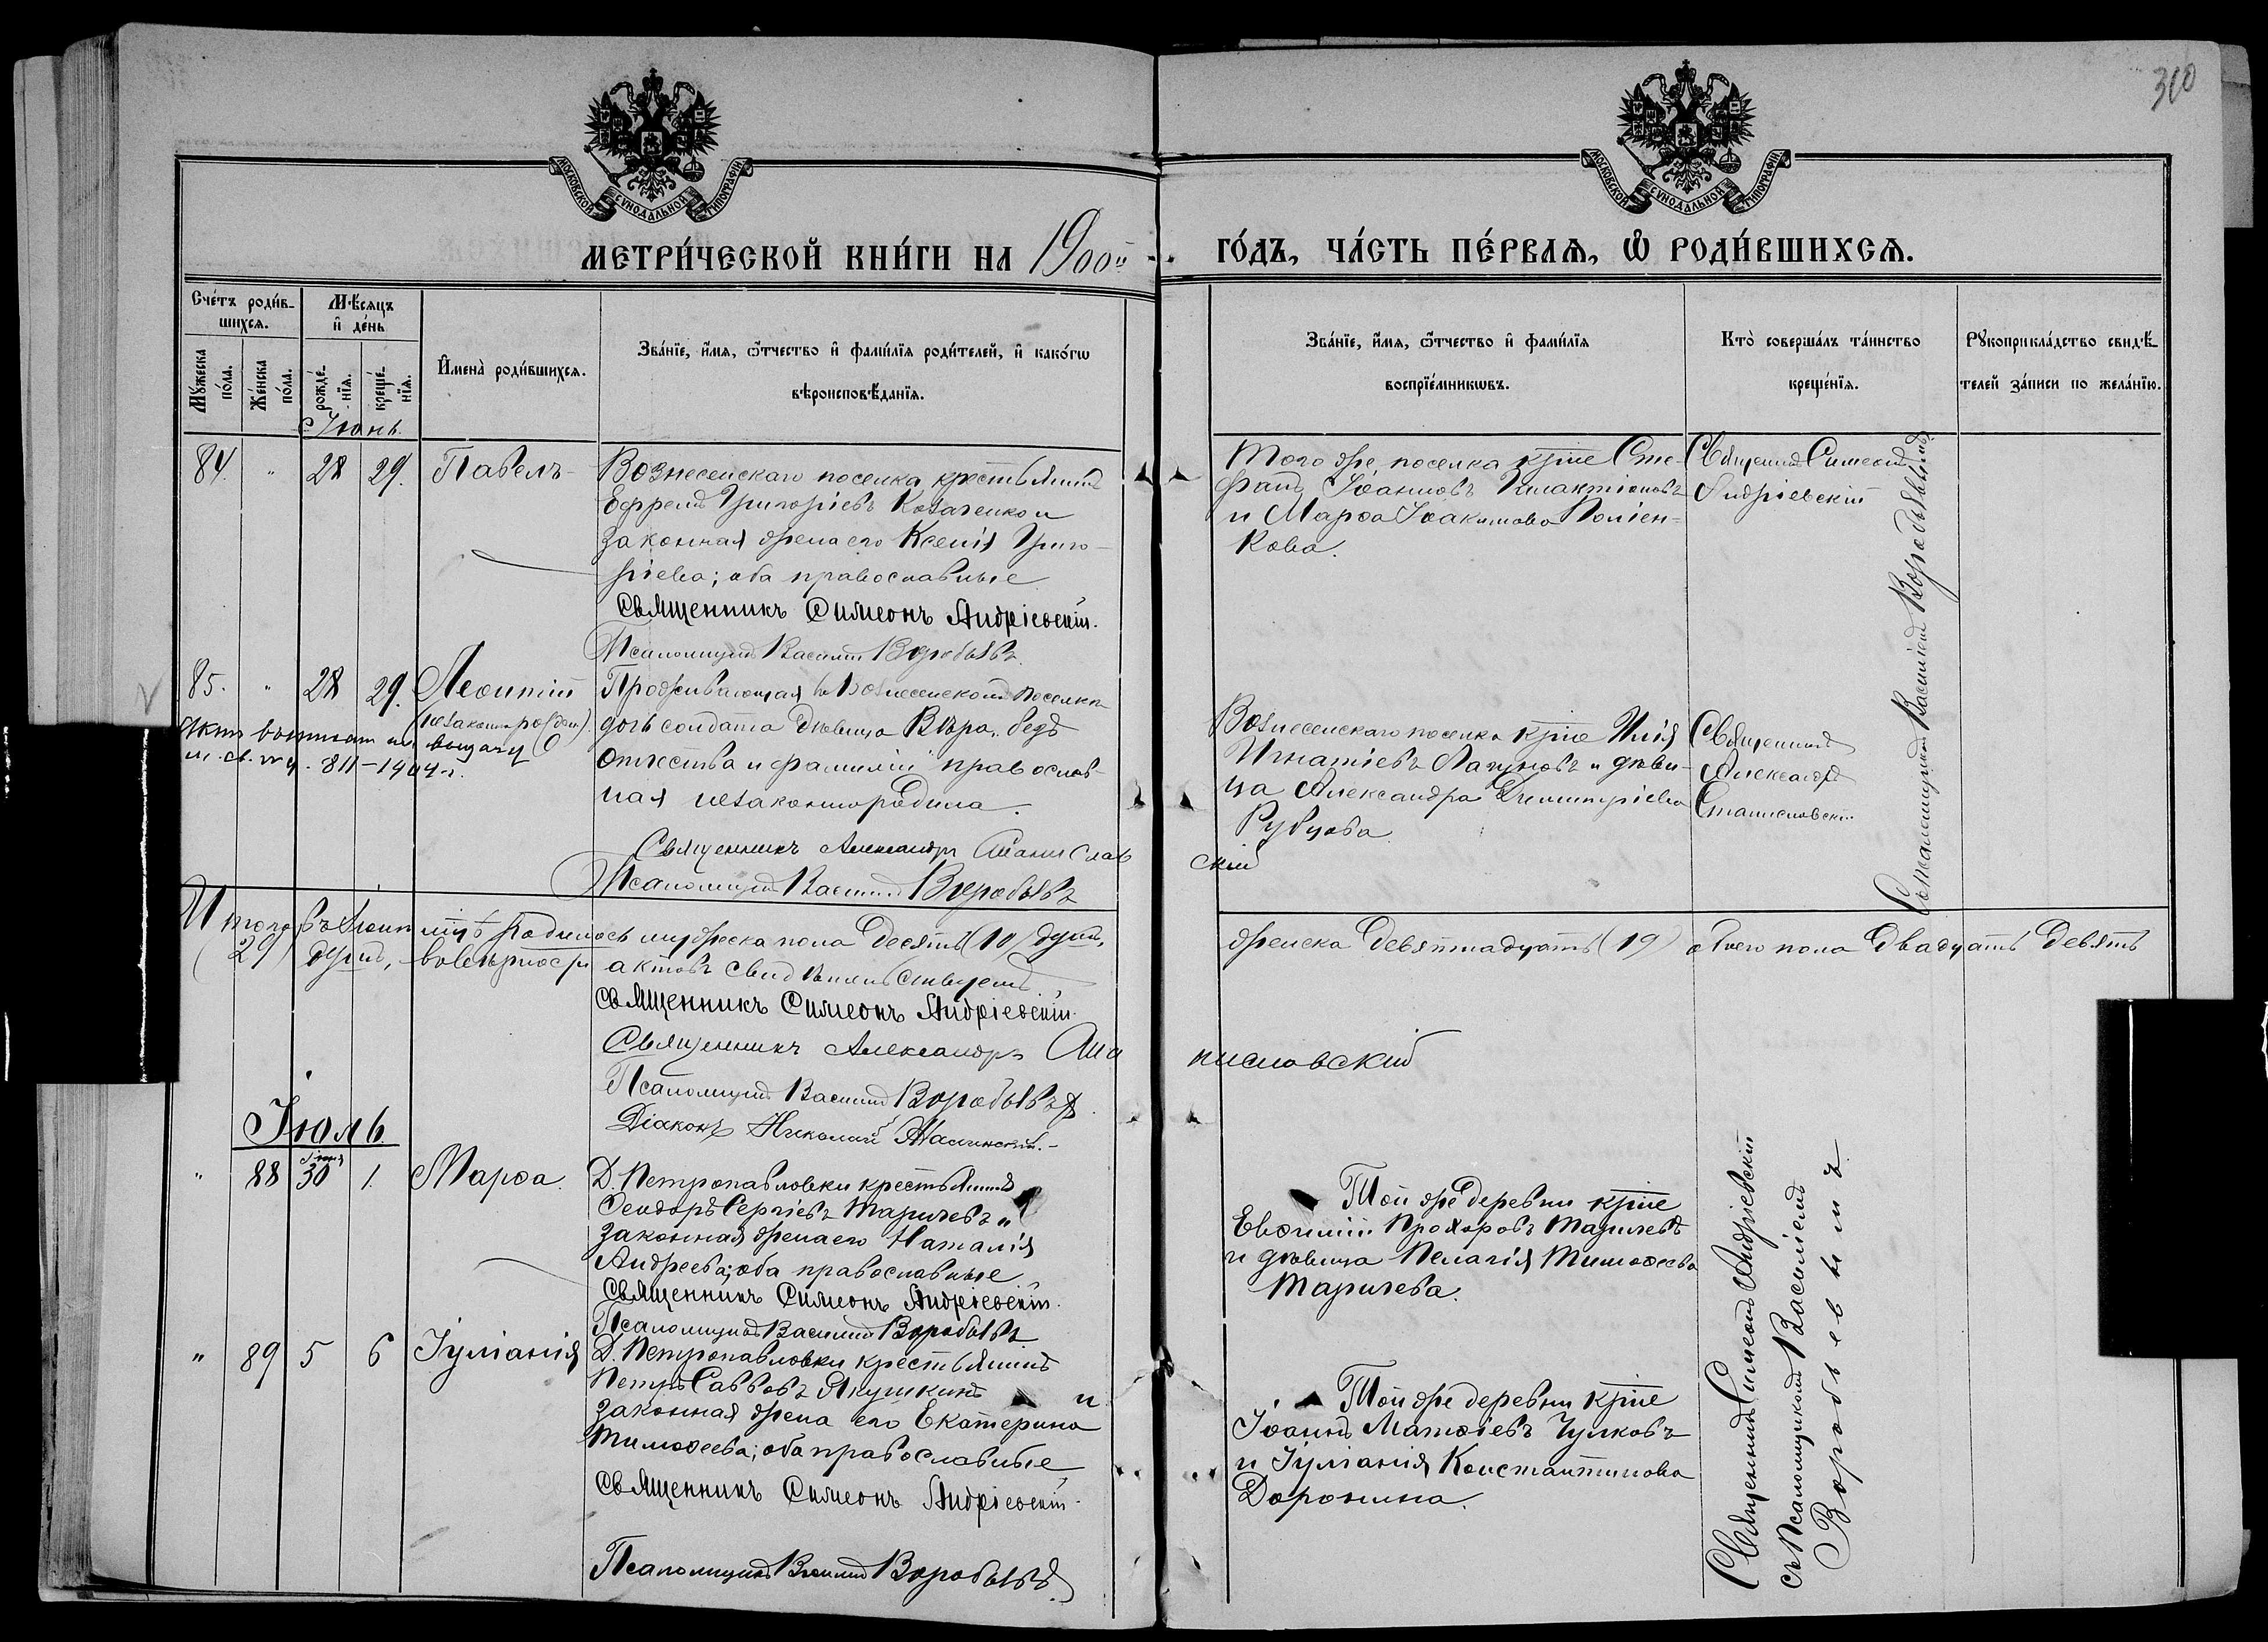 310
МОСКОВСКОЙ СѴНОДАЛЬНОЙ ТИПОГРАФІИ
МОСКОВСКОЙ СѴНОДАЛЬНОЙ ТИПОГРАФІИ
МЕТРИ́ЧЕСКОЙ КНИ́ГИ НА 1900й
ГО́ДЪ, ЧА́СТЬ ПЕ́РВАѦ, Ѽ РОДИ́ВШИХСѦ.
Сче́тъ роди́в-
шихсѧ.
Мꙋ́жеска по́ла.
Же́нска по́ла.
Мѣ́сѧцъ
и҆ де́нь
рожде́-
нїѧ.
креще́-
нїѧ.
И҆мена̀ роди́вшихсѧ.
Зва́нїе, и҆́мѧ, ѻ҆́тчество и҆ фамѝлїѧ роди́телей, и҆ како́гѡ
вѣроисповѣ́данїѧ.
Зва́нїе, и҆́мѧ, ѻ҆́тчество и҆ фами́лїѧ
воспрїе́мникѡвъ.
Кто̀ соверша́лъ та́инство
креще́нїѧ.
Рꙋкоприкла́дство свидѣ́-
телей за́писи по жела́нїю.
Іюнь.
84. " 28 29. Павелъ
Вознесенскаго поселка крестьянинъ
Ефремъ Григоріевъ Козаченко и
законная жена его Ксенія Григо-
ріева; оба православные
Священникъ Симеонъ Андріевскій.
Псаломщикъ Василій Воробьевъ.
Того же поселка кр͞не Сте-
фанъ Іоанновъ
и Марѳа Іоакимова Поліен-
кова.
Священникъ Симеонъ
Андріевскій
85. " 28 29. Леонтій
(незаконнорожден.)
811-1904 г.
Проживающая въ Вознесенскомъ поселкѣ
дочь солдата дѣвица Вѣра, безъ
отчества и фамиліи православ-
ная незаконнорождена.
Священникъ Александръ Станислав
скій
Псаломщикъ Василій Воробьевъ
Вознесенскаго поселка кр͞не Илія
Игнатіевъ Лагуновъ и дѣви-
ца Александра Димитріева
Рубцова
Священникъ
Александръ
Станиславскій
Съ псаломщикомъ Василіемъ Воробьевымъ
Итого въ Іюнѣ мцѣ родилось мужеска пола десять (10) душъ, женска девятнадцать (19) обоего пола двадцать девять
(29) душъ, вѣрность актовъ свидѣтельствуемъ
Священникъ Симеонъ Андріевскій.
Священникъ Александръ Ста
ниславскій
Псаломщикъ Василій Воробьевъ
Діаконъ Николай
Іюль.
" 88 Іюня 30 1. Марѳа.
Д. Петропавловки крестьянинъ
Ѳеодоръ Сергіевъ Таричевъ и
законная жена его Наталія
Андреева; оба православные
Священникъ Симеонъ Андріевскій.
Псаломщикъ Василій Воробьевъ
Той же деревни кр͞не
Евѳимій Прохоровъ Таричевъ
и дѣвица Пелагія Тимоѳеева
Таричева.
" 89 5 6 Іуліанія
Д. Петропавловки крестьянинъ
Петръ Саввовъ Якушкинъ и
законная жена его Екатерина
Тимоѳеева; оба православные
Священникъ Симеонъ Андріевскій.
Псаломщикъ Василій Воробьевъ
Той же деревни кр͞не
Іоаннъ Матѳіевъ Чулковъ
и Іуліанія Константинова
Доронина.
Священникъ Симеонъ Андріевскій
съ псаломщикомъ Василіемъ
Воробьевымъ